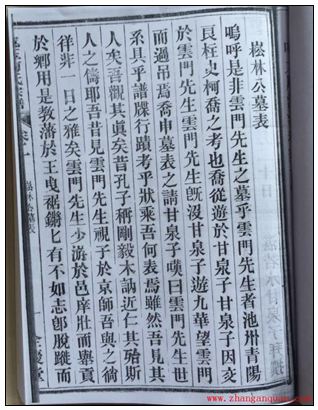 崧林公墓表
嗚呼是非雲門先生之墓乎雲門先生者池州青陽
良柱史柯喬之考也喬從遊於甘泉子甘泉子因交
於雲門先生雲門先生旣沒甘泉子遊九華望雲門
而過弔焉喬申墓表之請甘泉子嘆曰雲門先生世
系具乎譜牒行蹟考乎狀乘吾何表焉雖然吾見其
人矣吾觀其眞矣昔孔子稱剛毅木訥近仁其殆斯
人之儔耶吾昔見雲門先生視子於京師吾與之徜
徉非一日之雅矣雲門先生少游於邑庠壯而舉貢
於鄉用是敎藩於王曳裾鏘匕有不如志卽脫蹝而
崧林公墓表
www.zhanganquan.com